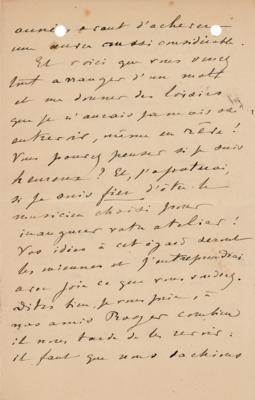 années avant d'achever
une œuvre aussi considérable.
Et voici que vous venez
tout arranger d'un mot
et me donner des loisirs
que je n'aurais jamais osé
entrevoir, même en rêve !
Vous pensez penser si je suis
heureux ? Et, j'ajouterai,
si je suis fier d'être le
musicien choisi pour
inaugurer votre atelier !
Vos idées à cet égard seront
les miennes et j'entreprendrai
avec joie ce que vous voudrez.
Dites bien, je vous prie, à
nos amis Rooger combien
il nous tarde de les revoir :
il faut que nous sachions